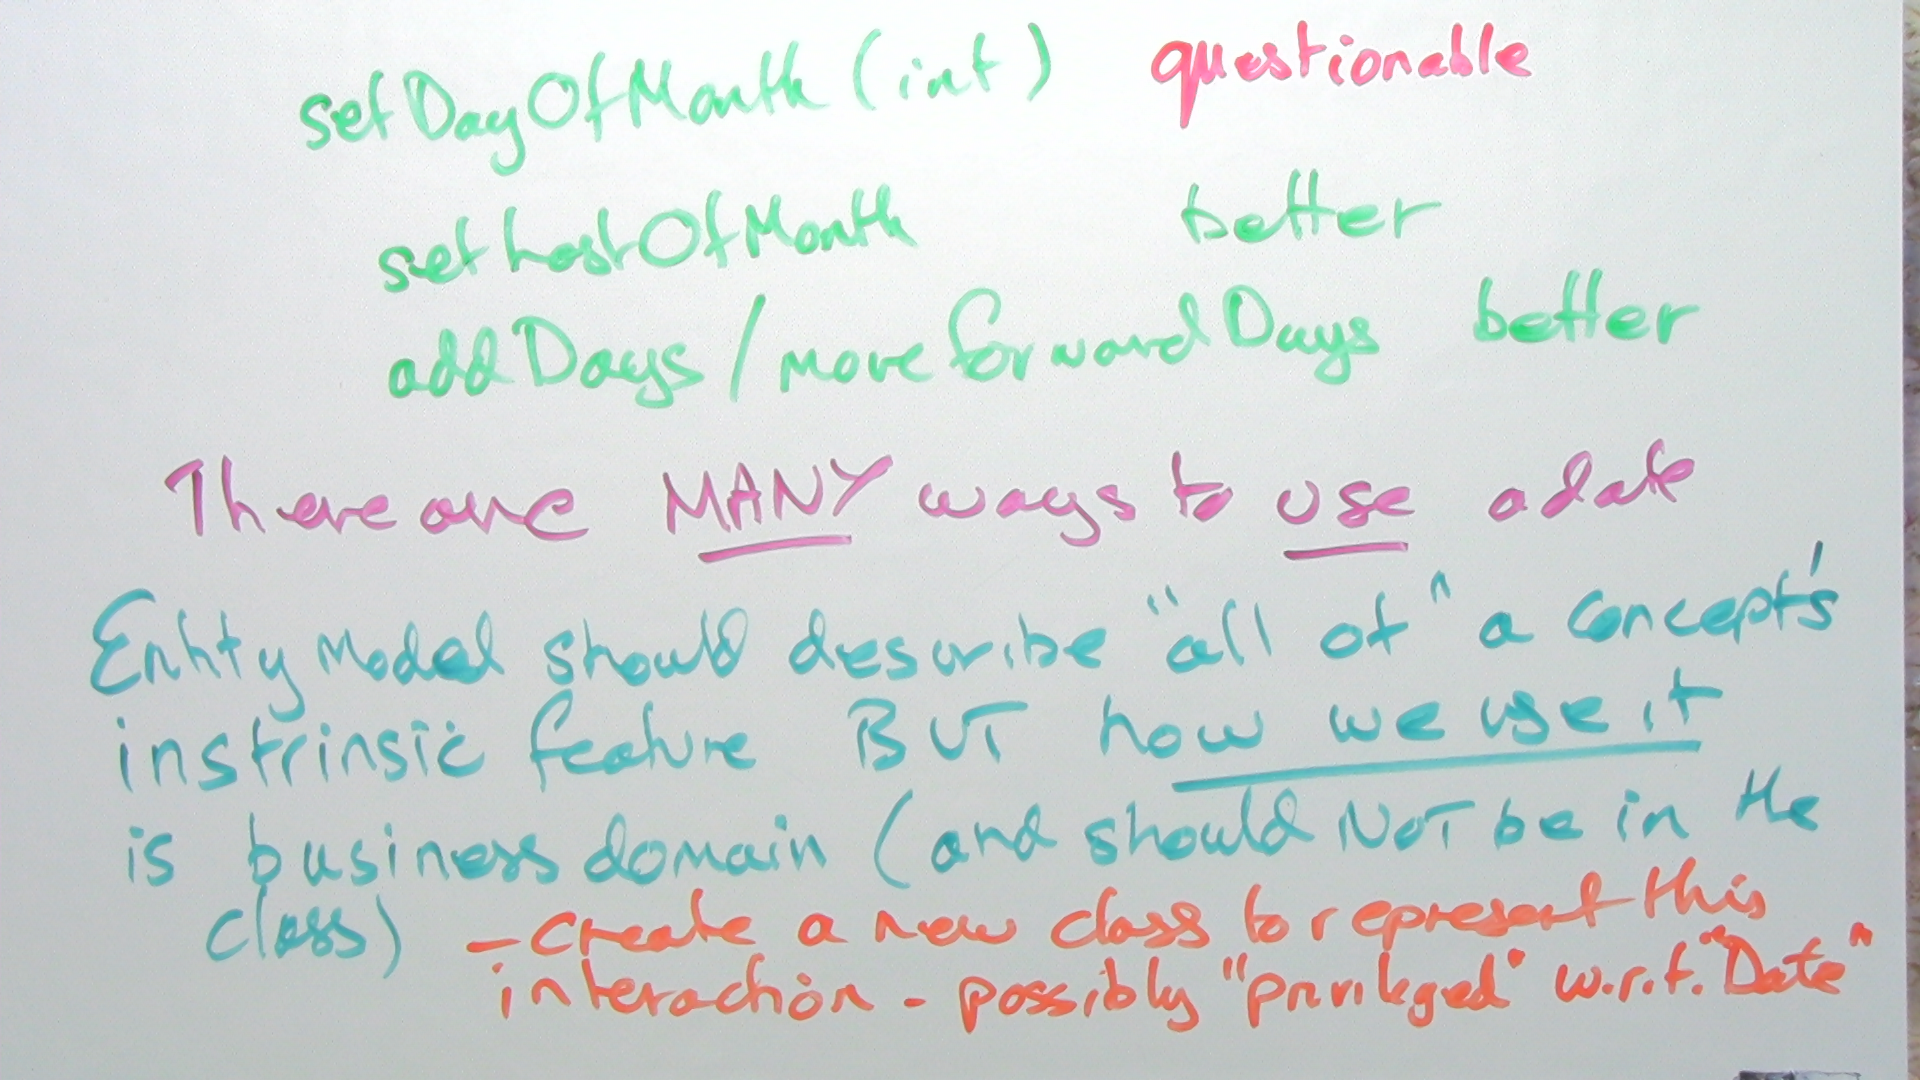 setDayOfMonth (int) questionable
setLastOfMonth better
addDays / moveForwardDays better
There are MANY ways to use a date
Entity Model should describe "all of" a concept's
instrinsic feature BUT how we use it
is business domain (and should NOT be in the
class) - create a new class to represent this
interaction - possibly "privileged" w.r.t. "Date"